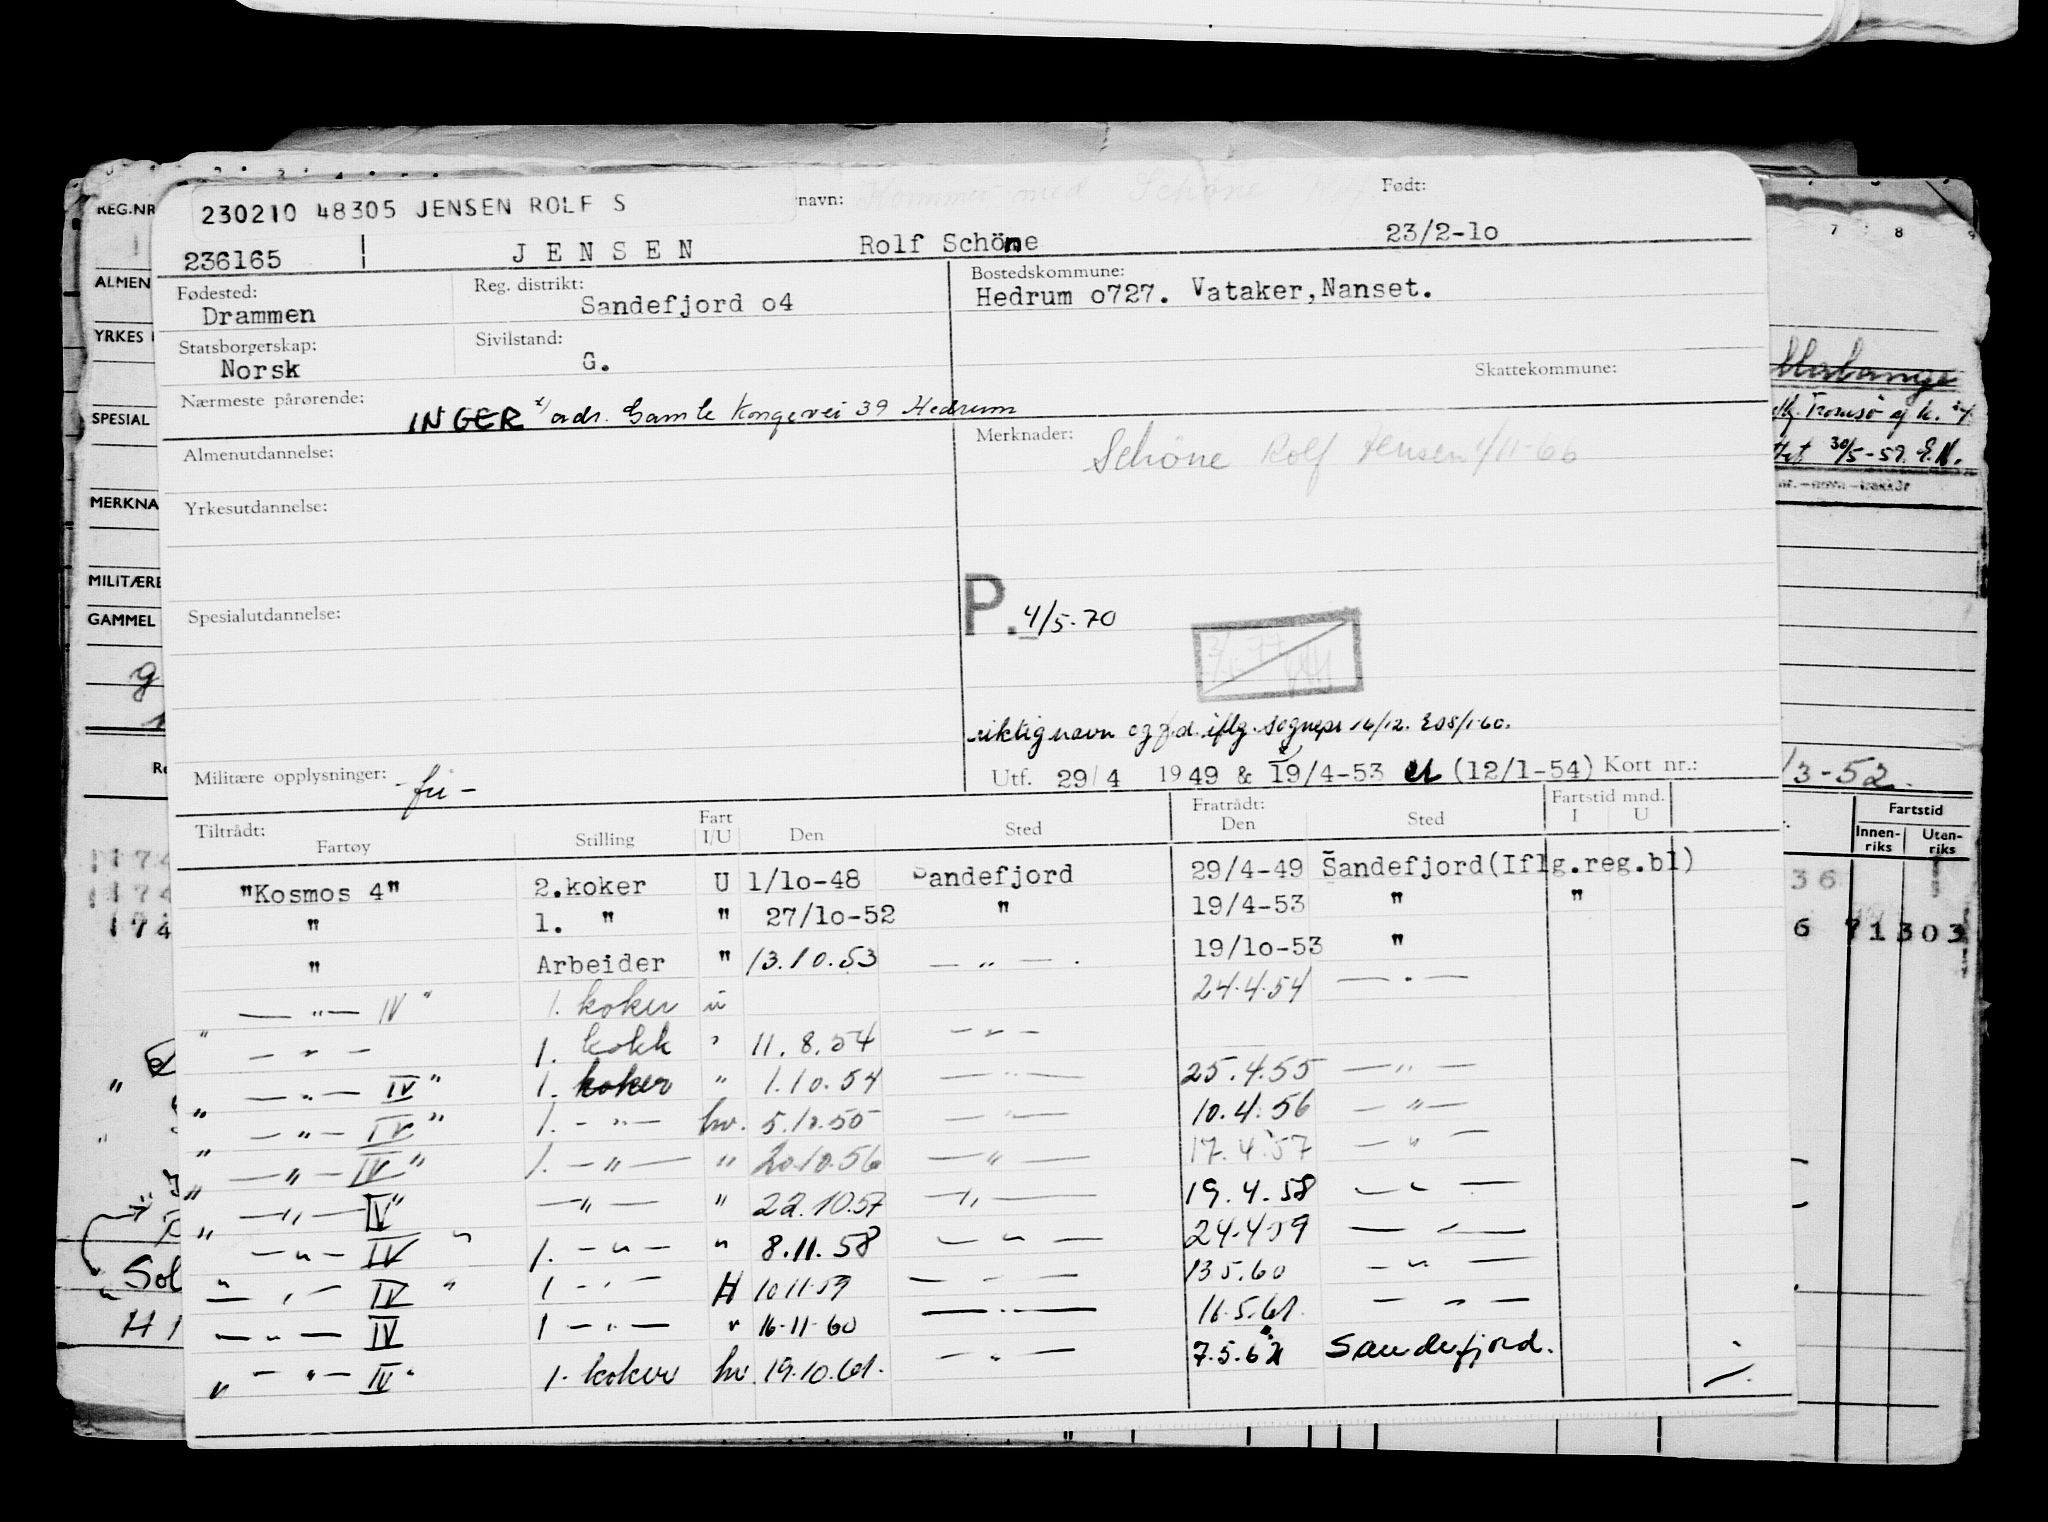 230210 48305 JENSEN ROLF S
rnavn: Kommer med Schöne Rolf.
Født:
236165 | J E N S E N Rolf Schöne 23/2-1o
Fødested: Drammen
Reg. distrikt: Sandefjord o4
Bostedskommune: Hedrum o727. Vataker,Nanset.
Statsborgerskap: Norsk
Sivilstand: G.
Skattekommune:
Nærmeste pårørende: INGER x) adr. Gamle Kongevei 39 Hedrum
Almenutdannelse:
Merknader: Schöne Rolf Jensen 1/11-66
Yrkesutdannelse:
Spesialutdannelse:
P. 4/5-70
riktig navn og f.d. iflg. sognepr 16/12. ES 8/1-60.
Militære opplysninger: - fri -
Utf. 29/4 1949 & 19/4-53 (12/1-54) Kort nr.:
Tiltrådt: Fratrådt: Fartstid mnd.
Fartøy Stilling Fart I/U Den Sted Den Sted I U
"Kosmos 4" 2.koker U 1/1o-48 Sandefjord 29/4-49 Sandefjord(Iflg.reg.bl)
" 1. " " 27/1o-52 " 19/4-53 " "
" Arbeider " 13.10.53 — " — . 19/1o-53 "
— " — IV " 1. koker u 24.4.54 — " —
" — " — 1. kokk " 11.8.54 — " —
" — " — IV " 1. koker " 1.10.54 — " — 25.4.55 — " —
" — " — IV " 1. — " — hv. 5.10.55 — " — 10.4.56 — " —
" — " — IV " 1. — " — " 20.10.56 — " — 17.4.57 — " —
" — " — IV " — " — " 22.10.57 — " — 19.4.58 — " —
" — " — IV " 1. — " — " 8.11.58 — " — 24.4.59 — " —
" — " — IV " 1 — " — H 10.11.59 — " — 13.5.60 — " —
— " — IV 1 — " — " 16-11-60 — " — 16.5.61. — " —
" — " — IV " 1. koker hv. 19.10.61. — " — 7.5.62 Sandefjord.
REG.NR
ALMEN
YRKES
SPESIAL
MERKNA
MILITÆRE
GAMMEL
7 8 9
Malange
Tromsø
30/5-59. E.H.
/3-52.
Fartstid
Innen-riks Uten-riks
174
174
174
36
6 71303
Sol
H